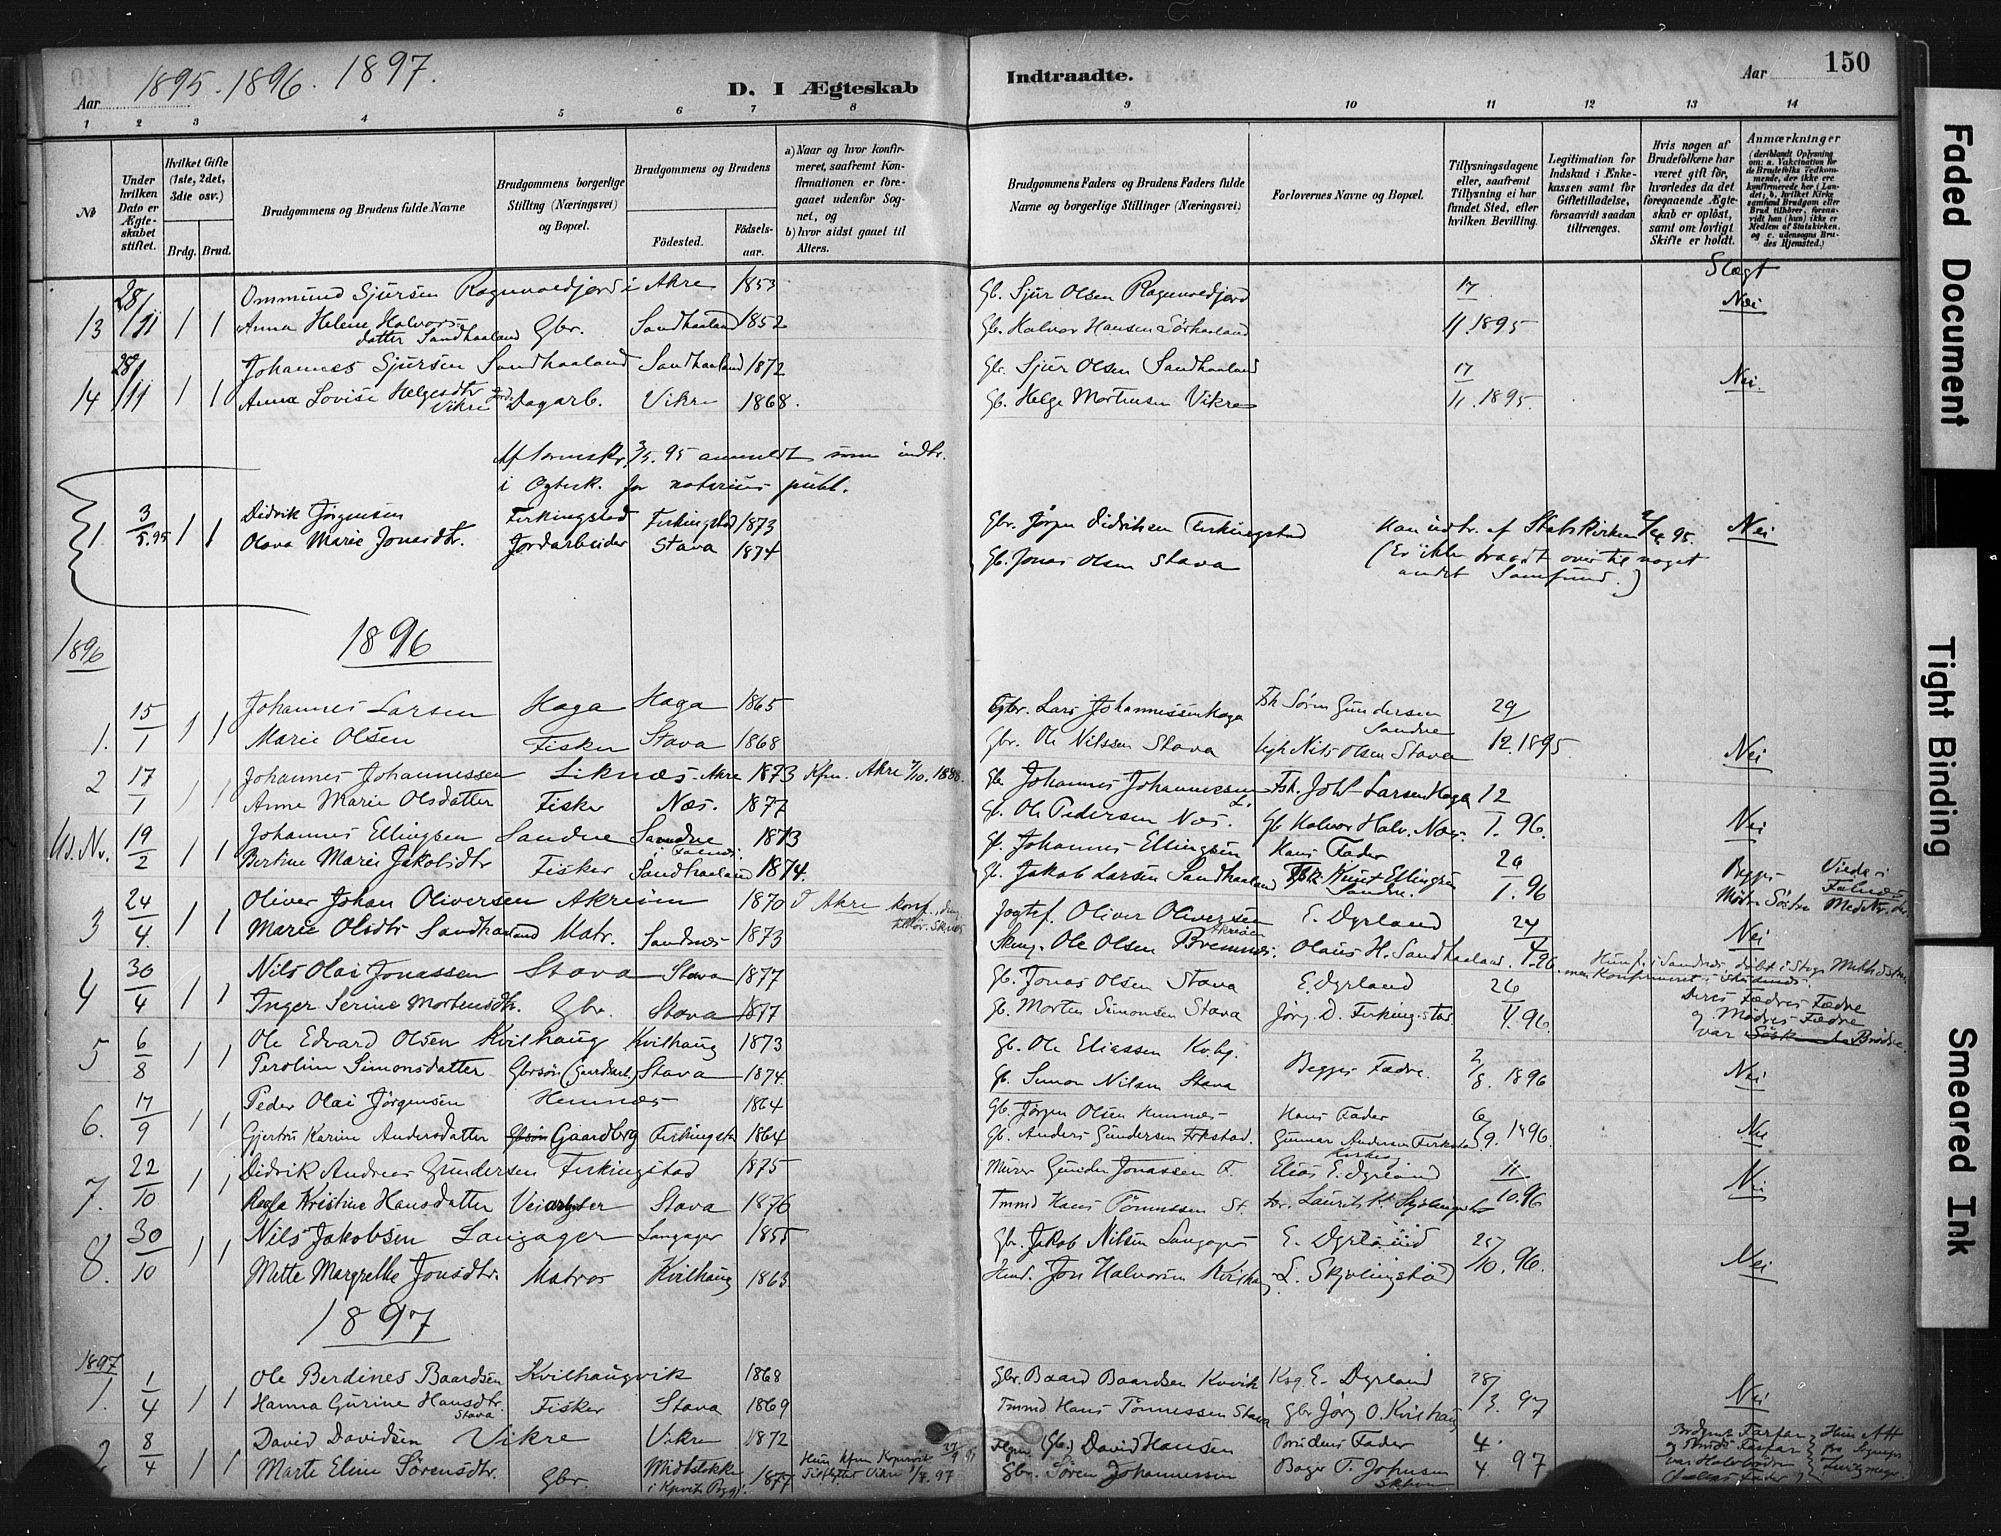 Aar 1895. 1896. 1897.
D. I Ægteskab
Indtraadte.
Aar 150
1 2 3 4 5 6 7 8 9 10 11 12 13 14
No
Under hvilken Dato er Ægteskabet stiftet.
Hvilket Gifte (1ste, 2det, 3die osv.)
Brdg. Brud.
Brudgommens og Brudens fulde Navne
Brudgommens borgerlige Stilling (Næringsvei) og Bopæl.
Brudgommens og Brudens
Födested.
Födselsaar.
a) Naar og hvor konfirmeret, saafremt Konfirmationen er foregaaet udenfor Sognet, og
b) hvor sidst gaaet til Alters.
Brudgommens Faders og Brudens Faders fulde Navne og borgerlige Stillinger (Næringsvei)
Forlovernes Navne og Bopæl.
Tillysningsdagene eller, saafremt Tillysning ei har fundet Sted, efter hvilken Bevilling.
Legitimation for Indskud i Enkekassen samt for Giftetilladelse, forsaavidt saadan tiltrænges.
Hvis nogen af Brudefolkene har været gift för, hvorledes da det foregaaende Ægteskab er oplöst, samt om lovligt Skifte er holdt.
Anmærkninger
(deriblandt Oplysning om: a. Vakcination for de Brudefolks Vedkommende, der ikke ere konfirmerede her i Landet; b. hvilket Kirkesamfund Brudgom eller Brud tilhörer, forsaavidt han (hun) ikke er Medlem af Statskirken, og c. udensogns Brudes Hjemsted.)
Slægt
28/ Ommund Sjursen Ragnvaldjord i Akre 1853 Gb. Sjur Olsen Ragnvaldjord 17 Nei
13 /11 1 1 Anna Helene Halvorsdatter Sandhaaland Gbr. Sandhaaland 1852 Gbr. Halvor Hansen Sörhaaland 11.1895
28/ Johannes Sjursen Sandhaaland Sandhaaland 1872 Gbr. Sjur Olsen Sandhaaland 17 Nei.
14 /11 1 1 Anna Lovise Helgesdtr Vikre Dagarb. Vikre 1868. Gb. Helge Mortensen Vikre 11.1895.
Af Sorenskr. 3/5.95 anmeldt som indtr.
i Ægtesk. for notarius publ.
1. 3/5.95 1 1 Didrik Jörgensen Ferkingstad Ferkingstad 1873 Gbr. Jörgen Didriksen Ferkingstad Han udtr. af Statskirken 2/4 95. Nei
Olava Marie Jonasdtr. Jordarbeider Stava 1874 Gb. Jonas Olsen Stava (Er ikke traadt over til noget
andet Samfund.)
1896
1896
15 Johannes Larsen Haga Haga 1865 Gbr. Lars Johannessen Haga Fsk Sören Gundersen Sandve 29
1. 1 1 1 Marie Olsen Fisker Stava 1868 Gbr. Ole Nilssen Stava Ugk Nils Olsen Stava 12.1895 Nei
2 17 Johannes Johannessen Liknæs Akre 1873 Kfm. Akre 7/10.1888. Gb. Johannes Johannessen L. Fsk. Joh Larsen Haga 12
1 1 1 Anne Marie Olsdatter Fisker Næs. 1877 Gb. Ole Pedersen Næs. Gb Halvor Halv. Næs. 1.96. Nei
Us. Nr. 19 Johannes Ellingsen Sandve Sandve 1873 Gb. Johannes Ellingsen Hans Fader 26
2 1 1 Bertine Marie Jakobsdtr Fisker Sandhaaland 1874. Gb. Jakob Larsen Sandhaaland Fsk Knut Ellingsen Sandve. 1.96 Begges Mödre Söstre
3 24 Oliver Johan Oliversen Akrøen 1870 I Akre konf. Jogtef. Oliver Oliversen Akrøen E. Dyrland 24 Nei
4. 1 1 Marie Olsdtr Sandhaaland Matr. Sandnæs 1873 Ole Olsen Bremnes. Olaus H. Sandhaaland. 4.96
4 30 Nils Olai Jonassen Stava Stava 1877 Gb. Jonas Olsen Stava E. Dyrland 26
4 1 1 Inger Serine Mortensdtr. Gbr. Stava 1877 Gb. Morten Simonsen Stava Jörg. D. Ferkingstad 4.96. Deres Fædres Fædre og Mödres Fædre var Brödre.
5 6 Ole Edvard Olsen Kvilhaug Kvilhaug 1873 Gb. Ole Eliassen Kvhg. Begges Fædre. 2 Nei
8 1 1 Perolina Simonsdatter Gbrsön (Gaardarb.) Stava 1874. Gb. Simon Nilsen Stava 8. 1896
6. 17 Peder Olai Jörgensen Hemnæs 1864 Gb. Jörgen Olsen Hemnæs Hans Fader 6
9 1 1 Gjertru Karine Andersdatter Gaardbrg Ferkingsta 1864 Gb. Anders Gundersen Frkstad. Gunnar Andersen Ferkstad 9. 1896. Nei
7. 22 Didrik Andreas Gundersen Ferkingstad 1875 Murer Gunder Jonassen F. Elias E. Dyrland 11 Nei
10 1 1 Kristine Hansdatter Veiarbeider Stava 1876 Tmmd Hans Tönnessen St. Laurits 10.96
8. 30 Nils Jakobsen Langager Langager 1855 Gbr. Jakob Nilsen Langager E. Dyrland 25 Nei
10 1 1 Mette Margrethe Jonsdtr. Matros Kvilhaug 1863 Hmd. Jon Halvorsen Kvilhaug L. Skjölingstad 10.96.
1897
1897
1. 1 Ole Berdines Baardsen Kvilhaugvik 1868 Gbr. Baard Baardsen Kvvik Ksg. E. Dyrland 28 Nei
4 1 1 Hanna Gurine Hansdtr. Stava Fisker Stava 1869 Tmmd Hans Tönnessen Stava Gbr Jörg O. Kvilhaug 3. 97
2 8 David Davidsen Vikre Vikre 1872 (Gb.) David Hansen Brudens Fader 4.
4 1 1 Marte Eline Sörensdtr. Gbr. Midtstokke 1877 Gbr. Sören Johannessen Bager T. Johnsen 4 97
Faded Document
Tight Binding
Smeared Ink